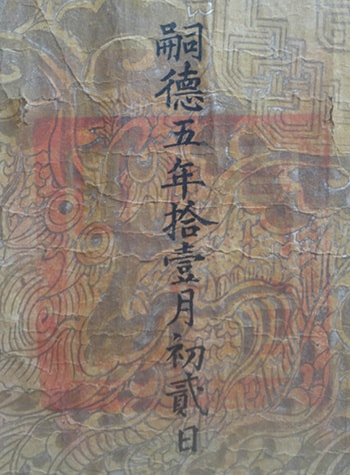 嗣德五年拾壹月初貳日